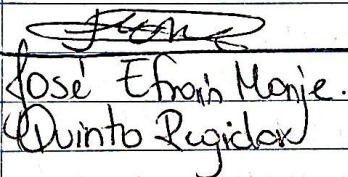 José Efraín Monje.
Quinto Regidor